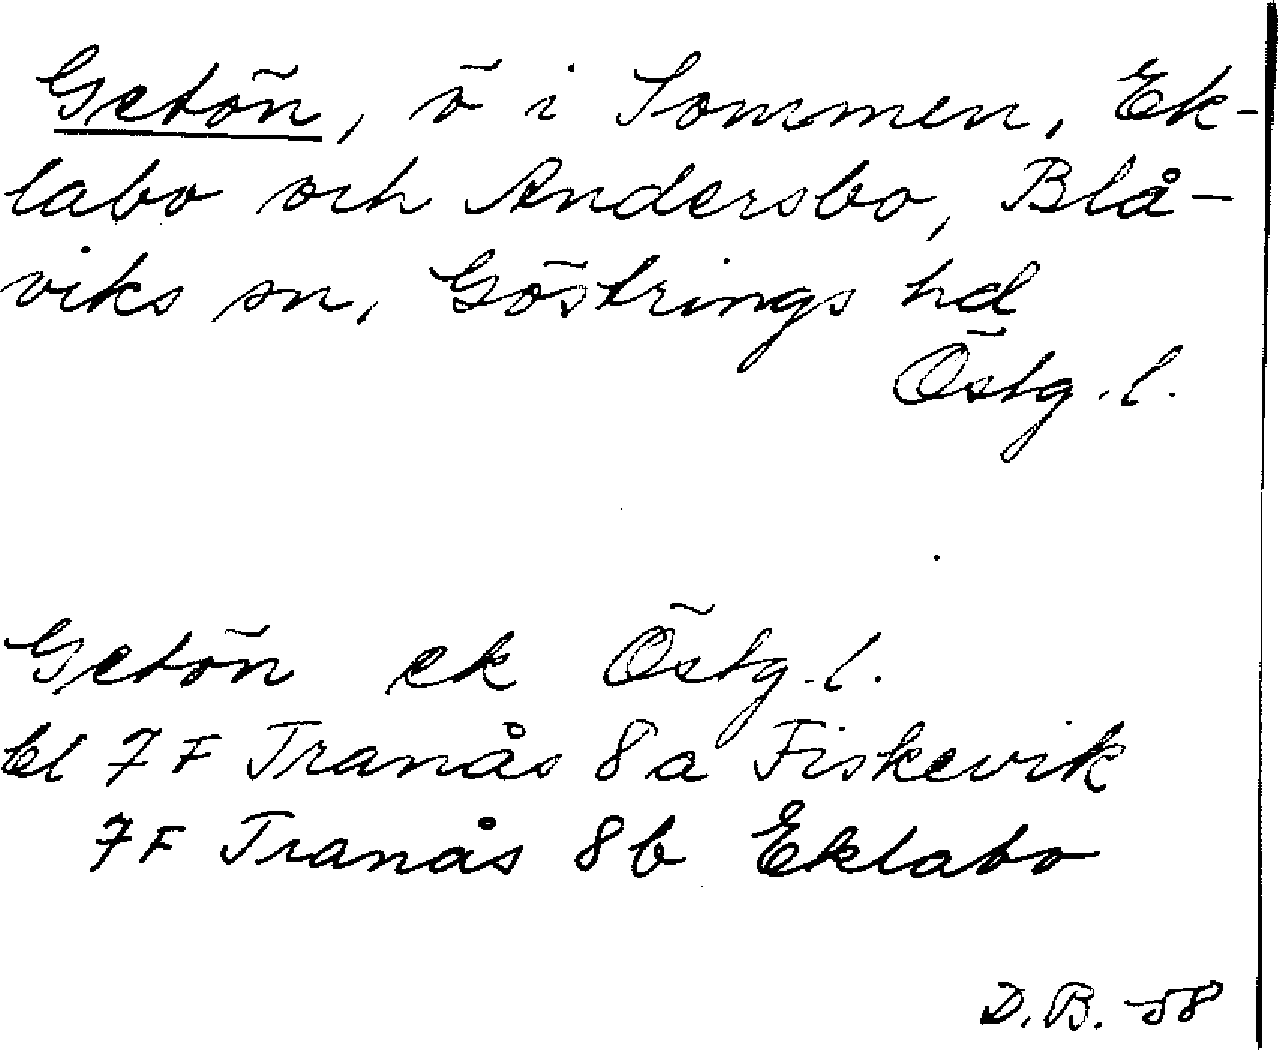 Getön, ö i Sommen, Ek-
labo och Andersbo, Blå-
viks sn, Göstrings hd
Östg. l.
Getön ek Östg. l.
bl 7F Tranås 8a Fiskevik
7F Tranås 8b Eklabo
D.B. -58